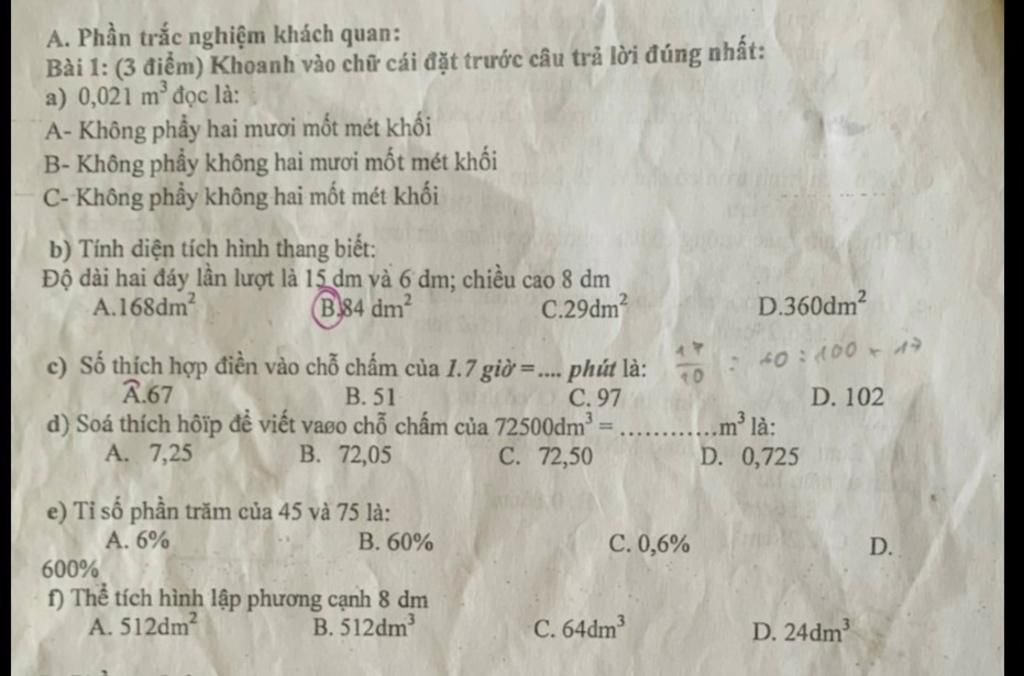 A. Phần trắc nghiệm khách quan:
Bài 1: (3 điểm) Khoanh vào chữ cái đặt trước câu trả lời đúng nhất:
a) 0,021 m³ đọc là:
A- Không phẩy hai mươi mốt mét khối
B- Không phẩy không hai mươi mốt mét khối
C- Không phẩy không hai mốt mét khối
b) Tính diện tích hình thang biết:
Độ dài hai đáy lần lượt là 15 dm và 6 dm; chiều cao 8 dm
A.168dm² B.84 dm² C.29dm² D.360dm²
c) Số thích hợp điền vào chỗ chấm của 1.7 giờ = .... phút là: 17/10 = 60 : 100 × 17
A.67 B. 51 C. 97 D. 102
d) Soá thích hôïp để viết vaøo chỗ chấm của 72500dm³ = ............m³ là:
A. 7,25 B. 72,05 C. 72,50 D. 0,725
e) Tỉ số phần trăm của 45 và 75 là:
A. 6% B. 60% C. 0,6% D.
600%
f) Thể tích hình lập phương cạnh 8 dm
A. 512dm² B. 512dm³ C. 64dm³ D. 24dm³